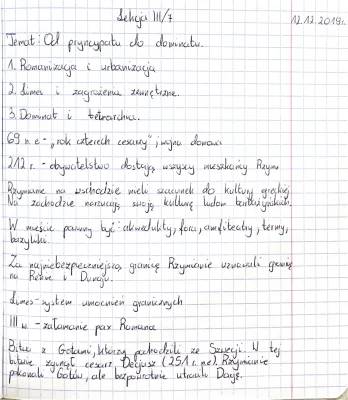 Lekcja III/7 12.12.2019r.
Temat: Od pryncypatu do dominatu.
1. Romanizacja i urbanizacja
2. Limes i zagrożenia zewnętrzne.
3. Dominat i tetrarchia.
69 n.e - „rok czterech cesarzy", wojna domowa
212 r. - obywatelstwo dostają wszyscy mieszkańcy Rzymu
Rzymianie na wschodzie mieli szacunek do kultury greckiej.
Na zachodzie narzucają swoją kulturę ludom barbarzyńskim.
W mieście powinny być: akwedukty, fora, amfiteatry, termy,
bazylika.
Za najniebezpieczniejszą granicę Rzymianie uznawali granicę
na Renie i Dunaju.
Limes - system umocnień granicznych
III w. - załamanie pax Romana
Bitwa z Gotami, którzy pochodzili ze Szwecji. W tej
bitwie zginął cesarz Decjusz (251 r. ne). Rzymianie
pokonali Gotów, ale bezpowrotnie utracili Dację.